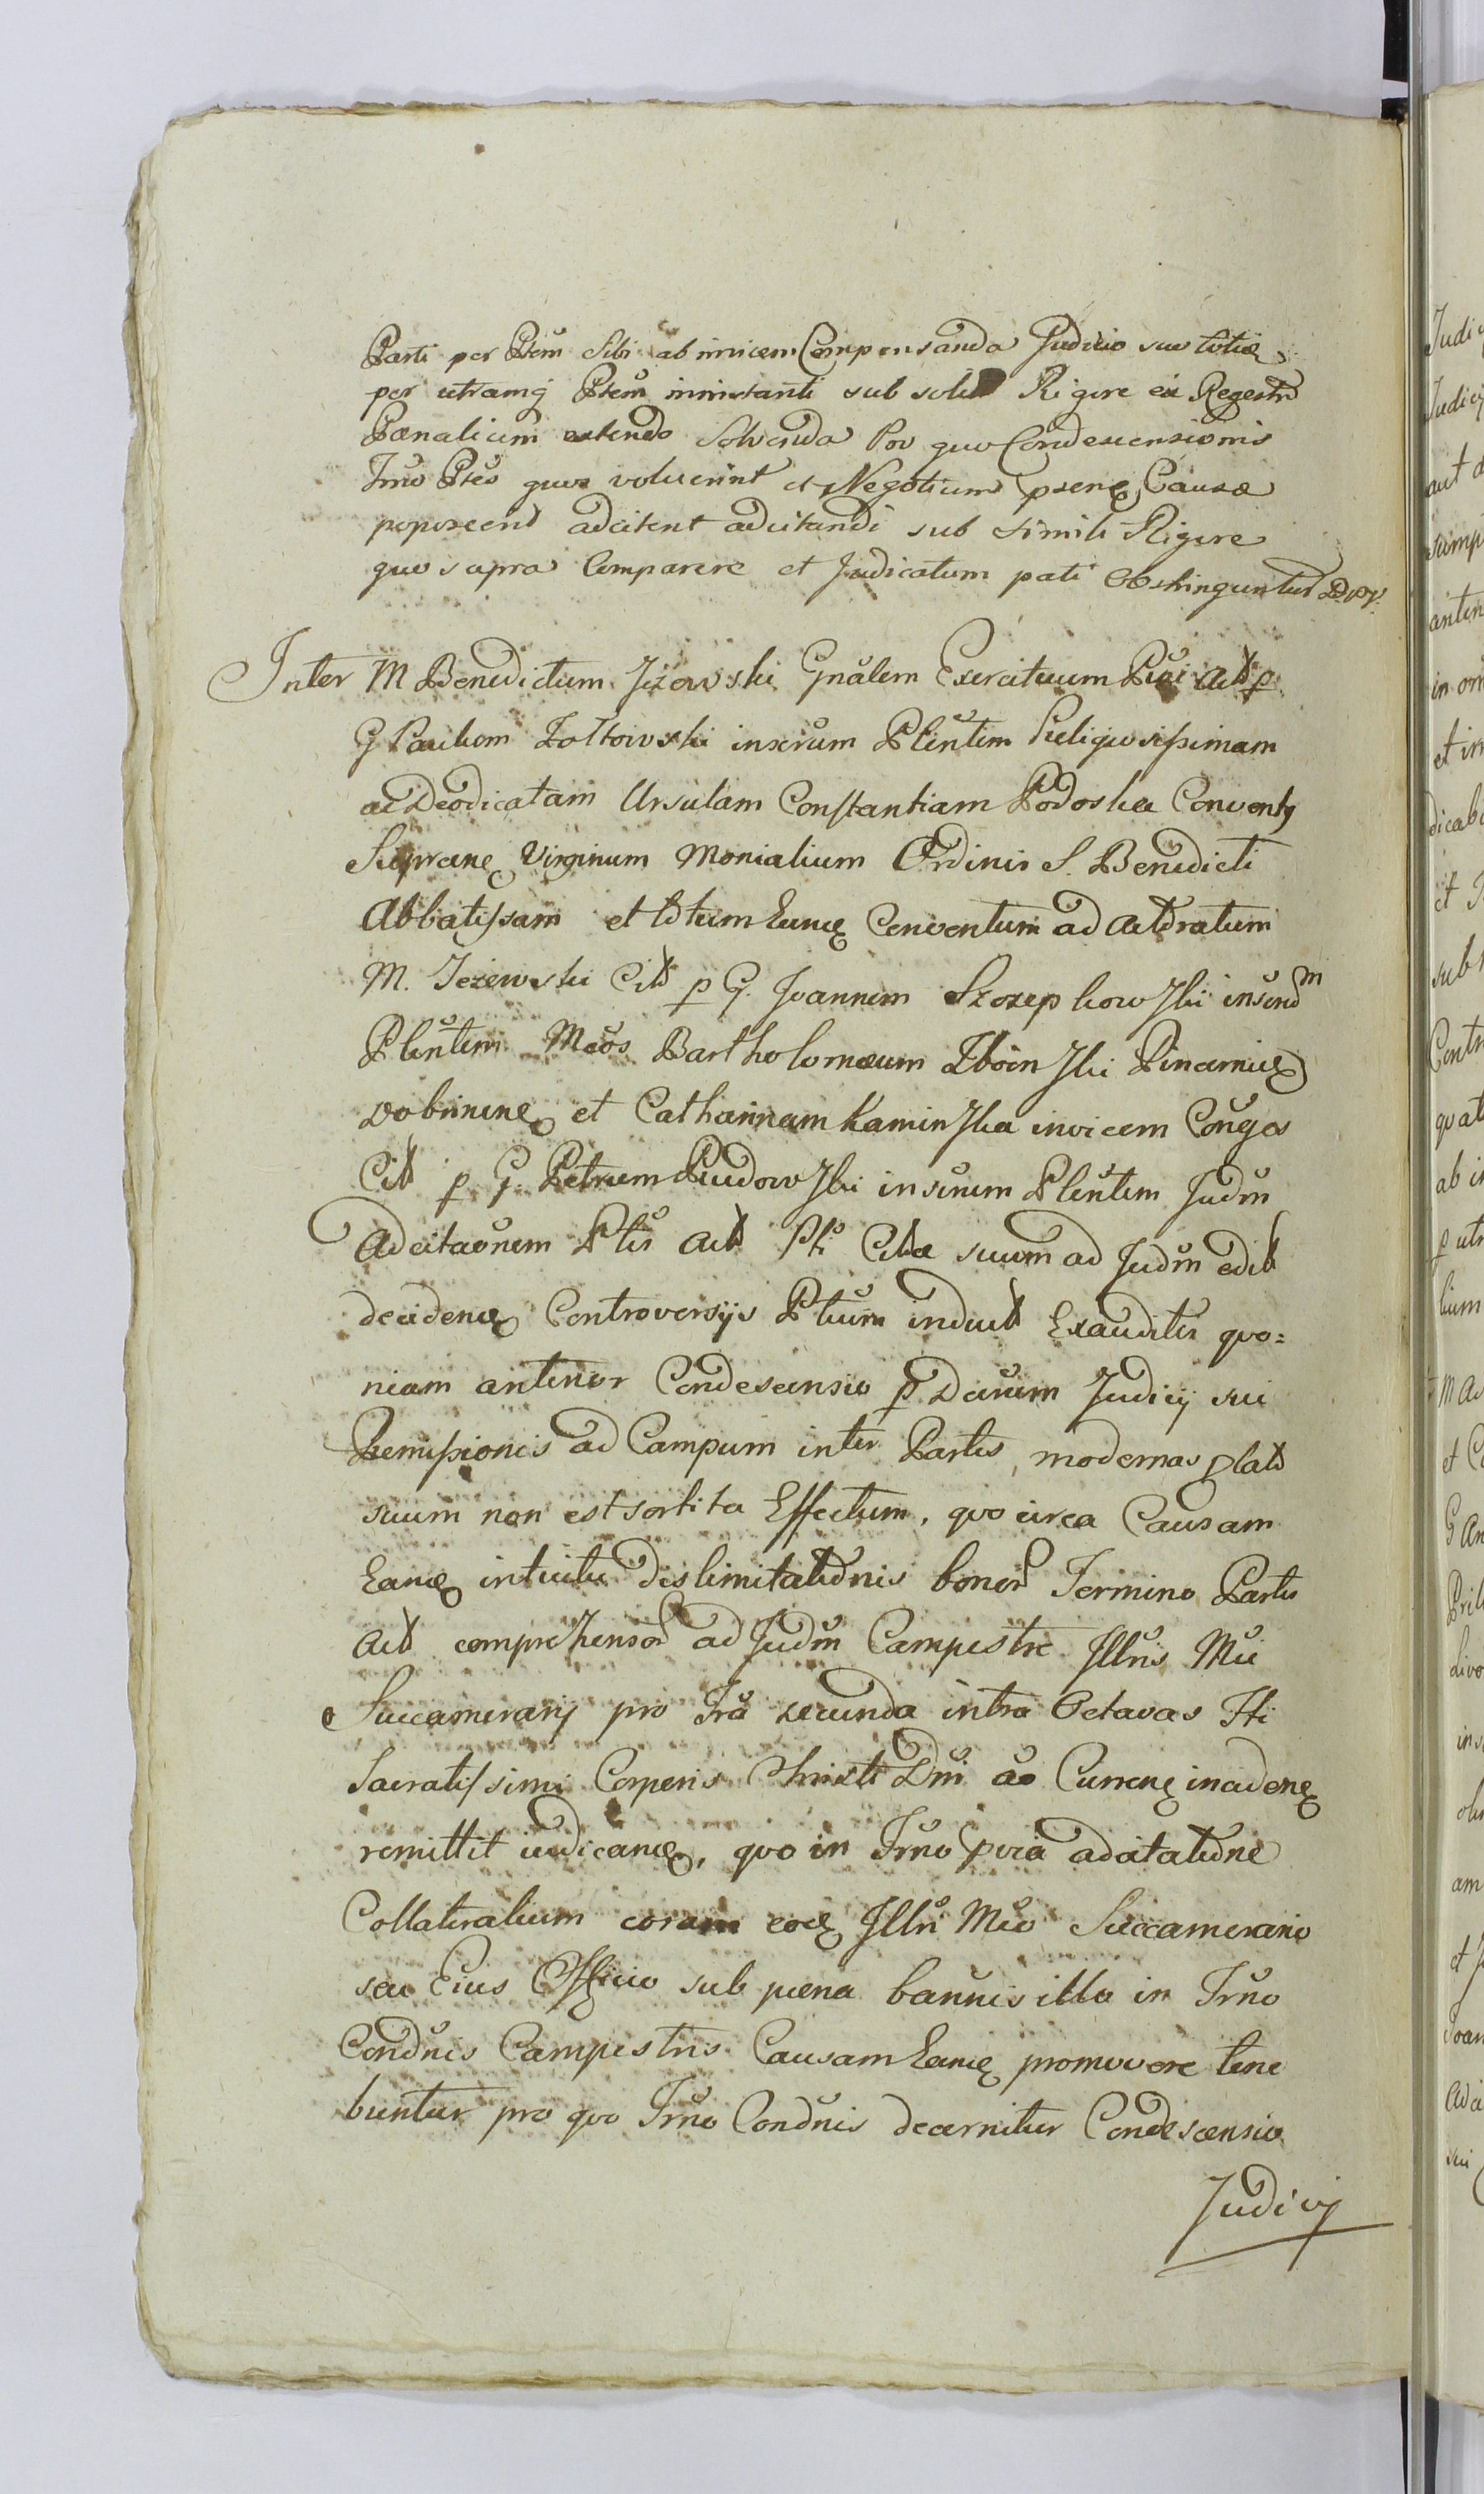 Parti per Ptem Sibi ab invicem Compensanda Judicio suo totie
per utramq Ptem inmistanti sub solit Rigore ex Regestro
Pænalium extendo Solvenda Pro quo Condescensionis
Trno Ptes quos voluerint et Negotium psene Causæ
poposcerit adcitent adcitandi sub simili Rigore
quo supra Comparere et Judicatum pati Obstringuntur D. pv.
Inter M Benedictum Jeżewski Gnalem Exercituum Actt p
G Paulum Zołtowski inserum Plentem Religiosissimam
ac Deodicatam Ursulam Constantiam Podoska Conventq
Sieprcene Virginum Monialium Ordinis S. Benedicti
Abbatissam et totum Eunde Conventum ad Acttoratum
M. Jeżewski Citt p G. Joannem Szczepkowski inserum
Plentem Mcos Bartholomæum Zboinski Pincernide
Dobrinene et Catharinam Kaminska invicem Conges
Citt p G. Petrum Rudowski inserum Plentem Judm
Adcitaonem Ptis Actt Pti Cittæ suum ad Judm editt
decidene Controversijs Ptium inductt Exauditis quo=
niam anterior Condescensio p Darum Judicij sui
Remissionis ad Campum inter Partes modernas platt
suum non est sortita Effectum, quo circa Causam
Eande intuitu dislimitationis bonor Termino Partis
Actt comprehensor ad Judm Campestre Illris Mci
Succamerarij pro Fra secunda intra Octavas Fti
Sacratissimi Corporis Christi Dni ao Currene incidene
remittit iudicande, quo in Trno pvia adcitatione
Collateralium coram eode Illri Mco Succamerario
seu Eius Officio sub pœna bannis illo in Trno
Condnis Campestris Causam Eande promovere tene
buntur pro quo Trno Condnis decernitur Condescensio
Judicij